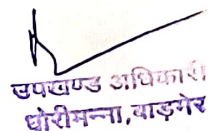 उपखण्ड अधिकारी
धोरीमन्ना, बाड़मेर